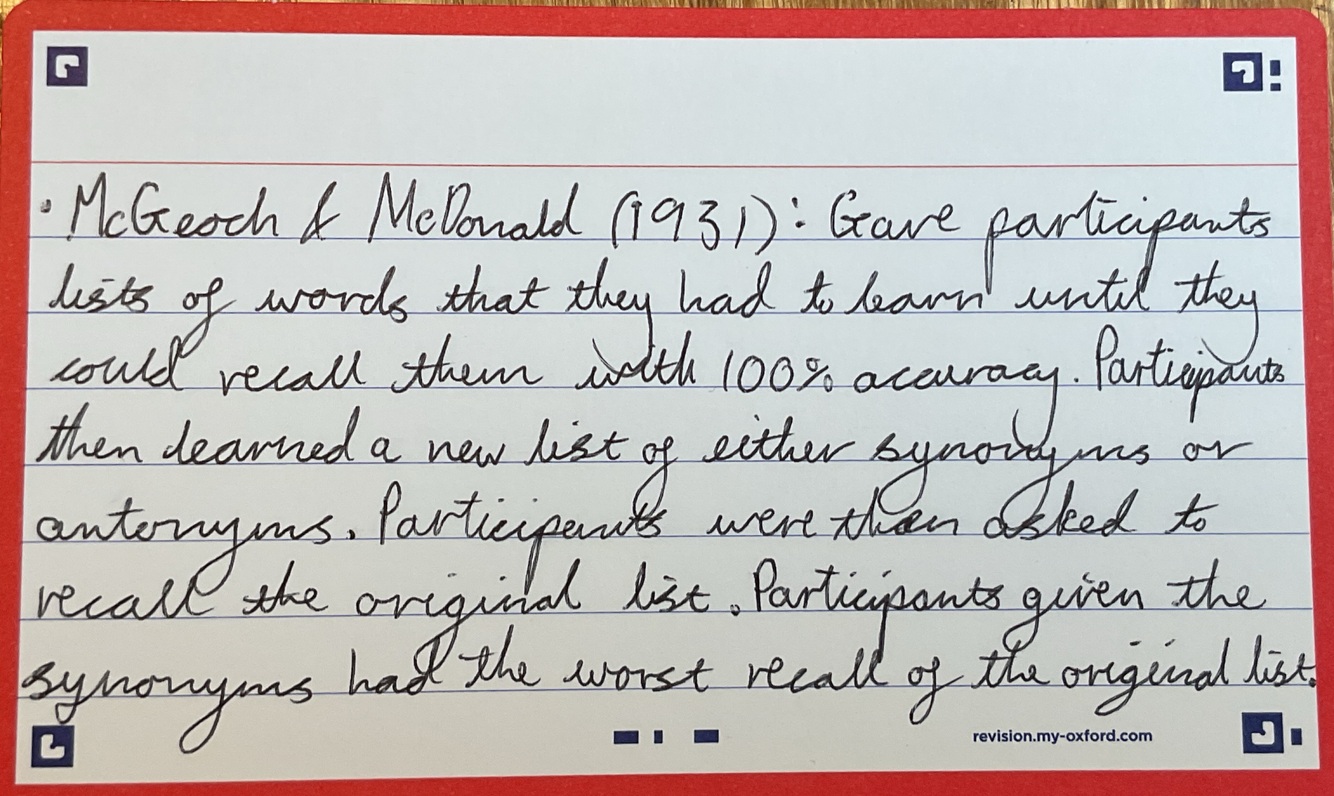 · McGeoch & McDonald (1931): Gave participants
lists of words that they had to learn until they
could recall them with 100% accuracy. Participants
then learned a new list of either synonyms or
antonyms. Participants were then asked to
recall the original list. Participants given the
synonyms had the worst recall of the original list.
revision.my-oxford.com